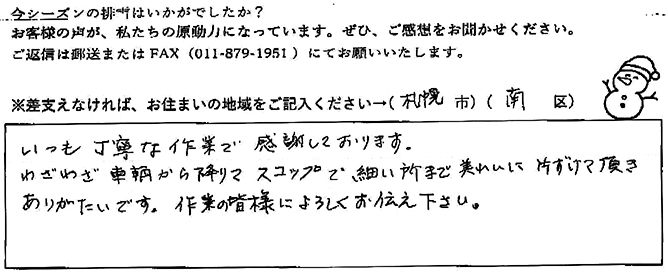 今シーズンの排雪はいかがでしたか？
お客様の声が、私たちの原動力になっています。ぜひ、ご感想をお聞かせください。
ご返信は郵送またはFAX（011-879-1951）にてお願いいたします。
※差支えなければ、お住まいの地域をご記入ください→（札幌 市）（南 区）
いつも丁寧な作業で感謝しております。
わざわざ車輌から降りてスコップで、細い所まで美れいに片ずけて頂き
ありがたいです。作業の皆様によろしくお伝え下さい。